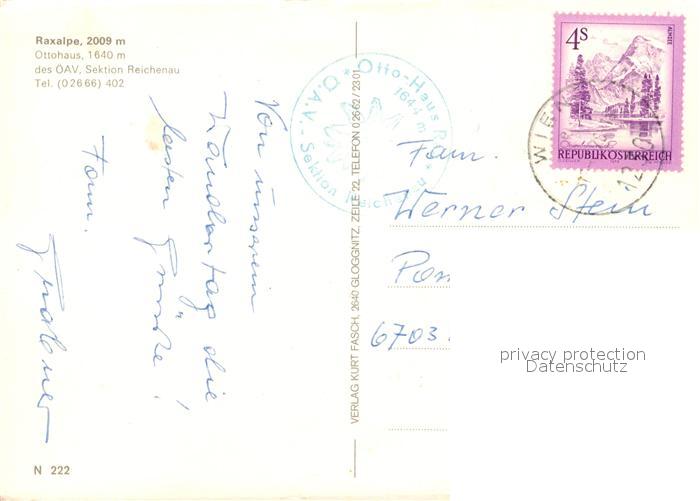 Raxalpe, 2009 m
Ottohaus, 1640 m
des ÖAV, Sektion Reichenau
Tel. (02666) 402
Von unserem
Wandertag die
besten Grüsse!
Fam.
N 222
VERLAG KURT FASCH, 2640 GLOGGNITZ, ZEILE 22, TELEFON 02662/2301
Otto-Haus
1644 m
Ö.A.V. - Sektion Reichenau
4S
ALMSEE
REPUBLIK ÖSTERREICH
WIE
Fam.
Werner Stein
6703
privacy protection
Datenschutz